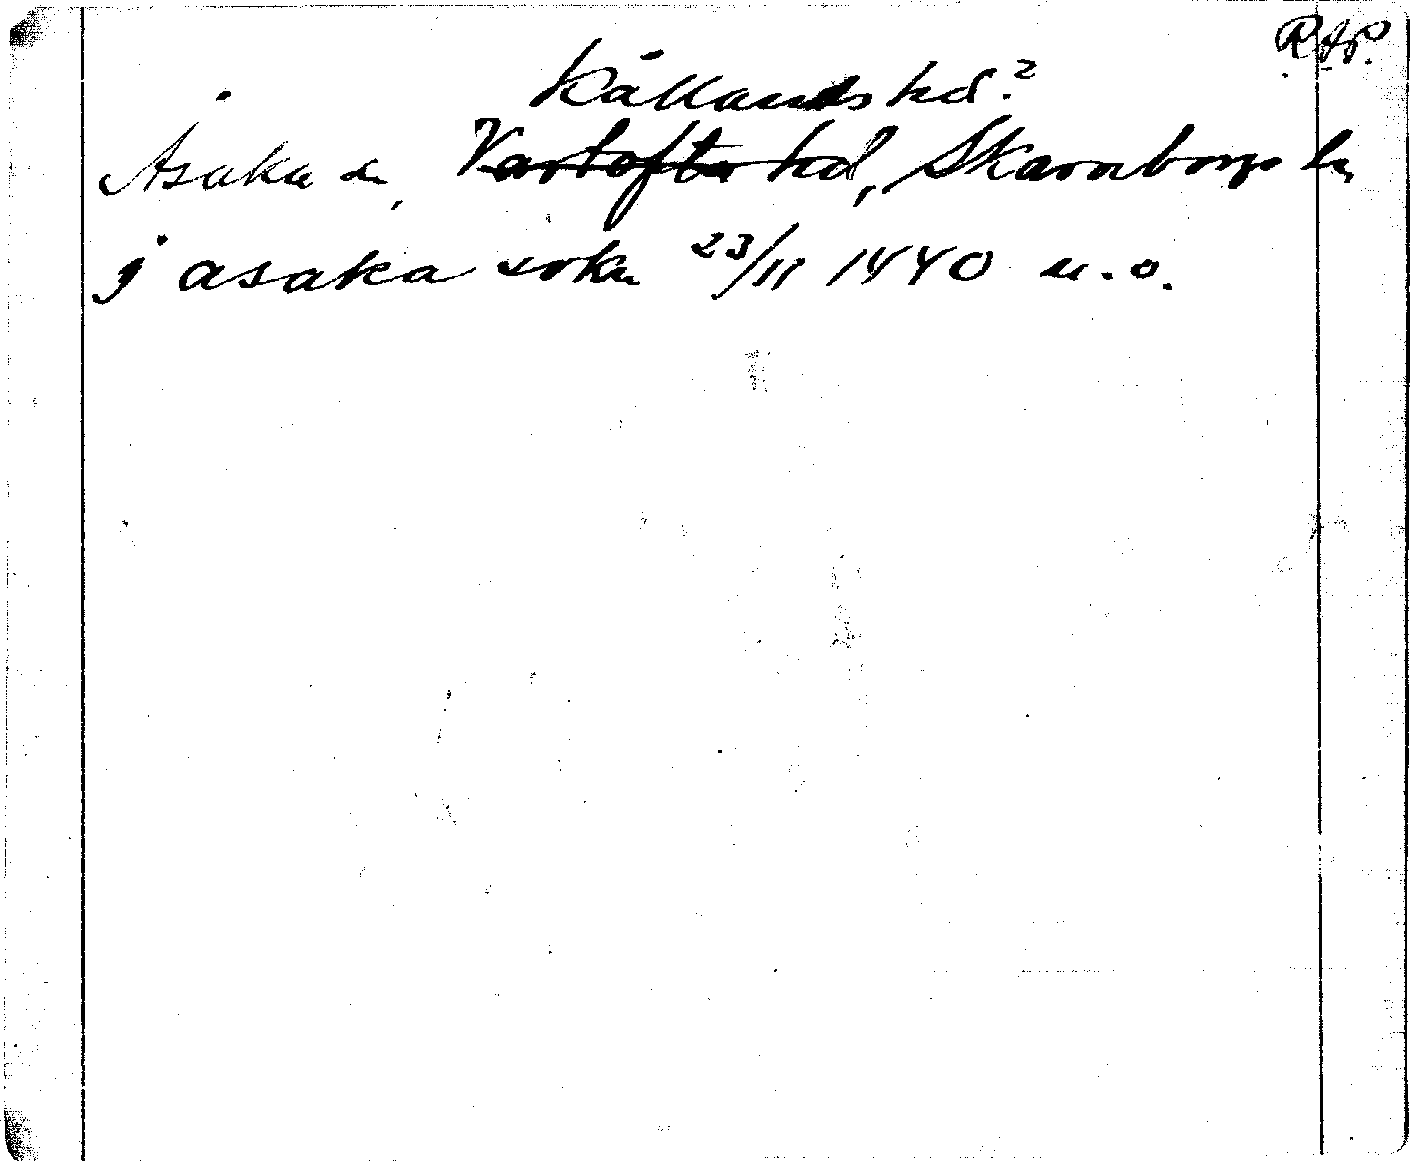 RAP.
Kållands hd.?
Åsaka sn, Vartofta hd, Skaraborgs län
j asaka sokn 23/11 1440 u.o.